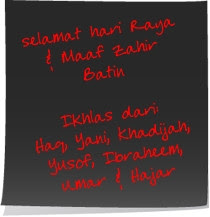 selamat hari Raya
& Maaf Zahir
Batin
Ikhlas dari:
Haq, Yani, Khadijah,
Yusof, Ibraheem,
Umar & Hajar